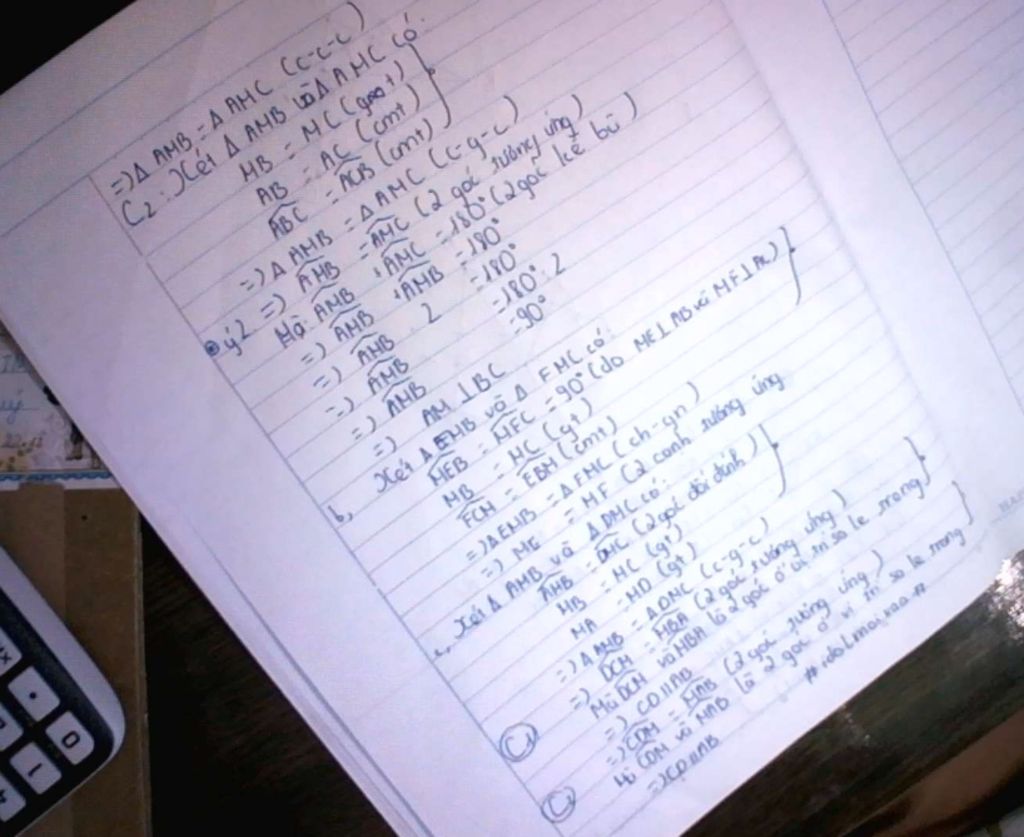 =) Δ AMB = Δ AMC (c-c-c)
C2 :) Xét Δ AMB và Δ AMC có
MB = MC (gt)
AB = AC (cmt)
ABC = ACB (cmt)
=) Δ AMB = Δ AMC (c-g-c)
ý2 =) AMB = AMC (2 góc tương ứng)
Mà: AMB + AMC = 180° (2 góc kề bù)
=) AMB + AMB = 180°
=) AMB 2 = 180°
=) AMB = 180° : 2
=) AMB = 90°
=) AM ⊥ BC
b, Xét Δ EMB và Δ FMC có
MEB = MFC = 90° (do ME ⊥ AB và MF ⊥ AC)
MB = MC (gt)
FCM = EBM (cmt)
=) Δ EMB = Δ FMC (ch-gn)
=) ME = MF (2 cạnh tương ứng
c, Xét Δ AMB và Δ DMC có:
AMB = DMC (2 góc đối đỉnh)
MB = MC (gt)
MA = MD (gt)
=) Δ AMB = Δ DMC (c-g-c)
=) DCM = MBA (2 góc tương ứng)
Mà DCM và MBA là 2 góc ở vị trí so le trong
=) CD // AB
C1
=) CDM = MAB (2 góc tương ứng)
CDM và MAB là 2 góc ở vị trí so le trong
C2
=) CD // AB